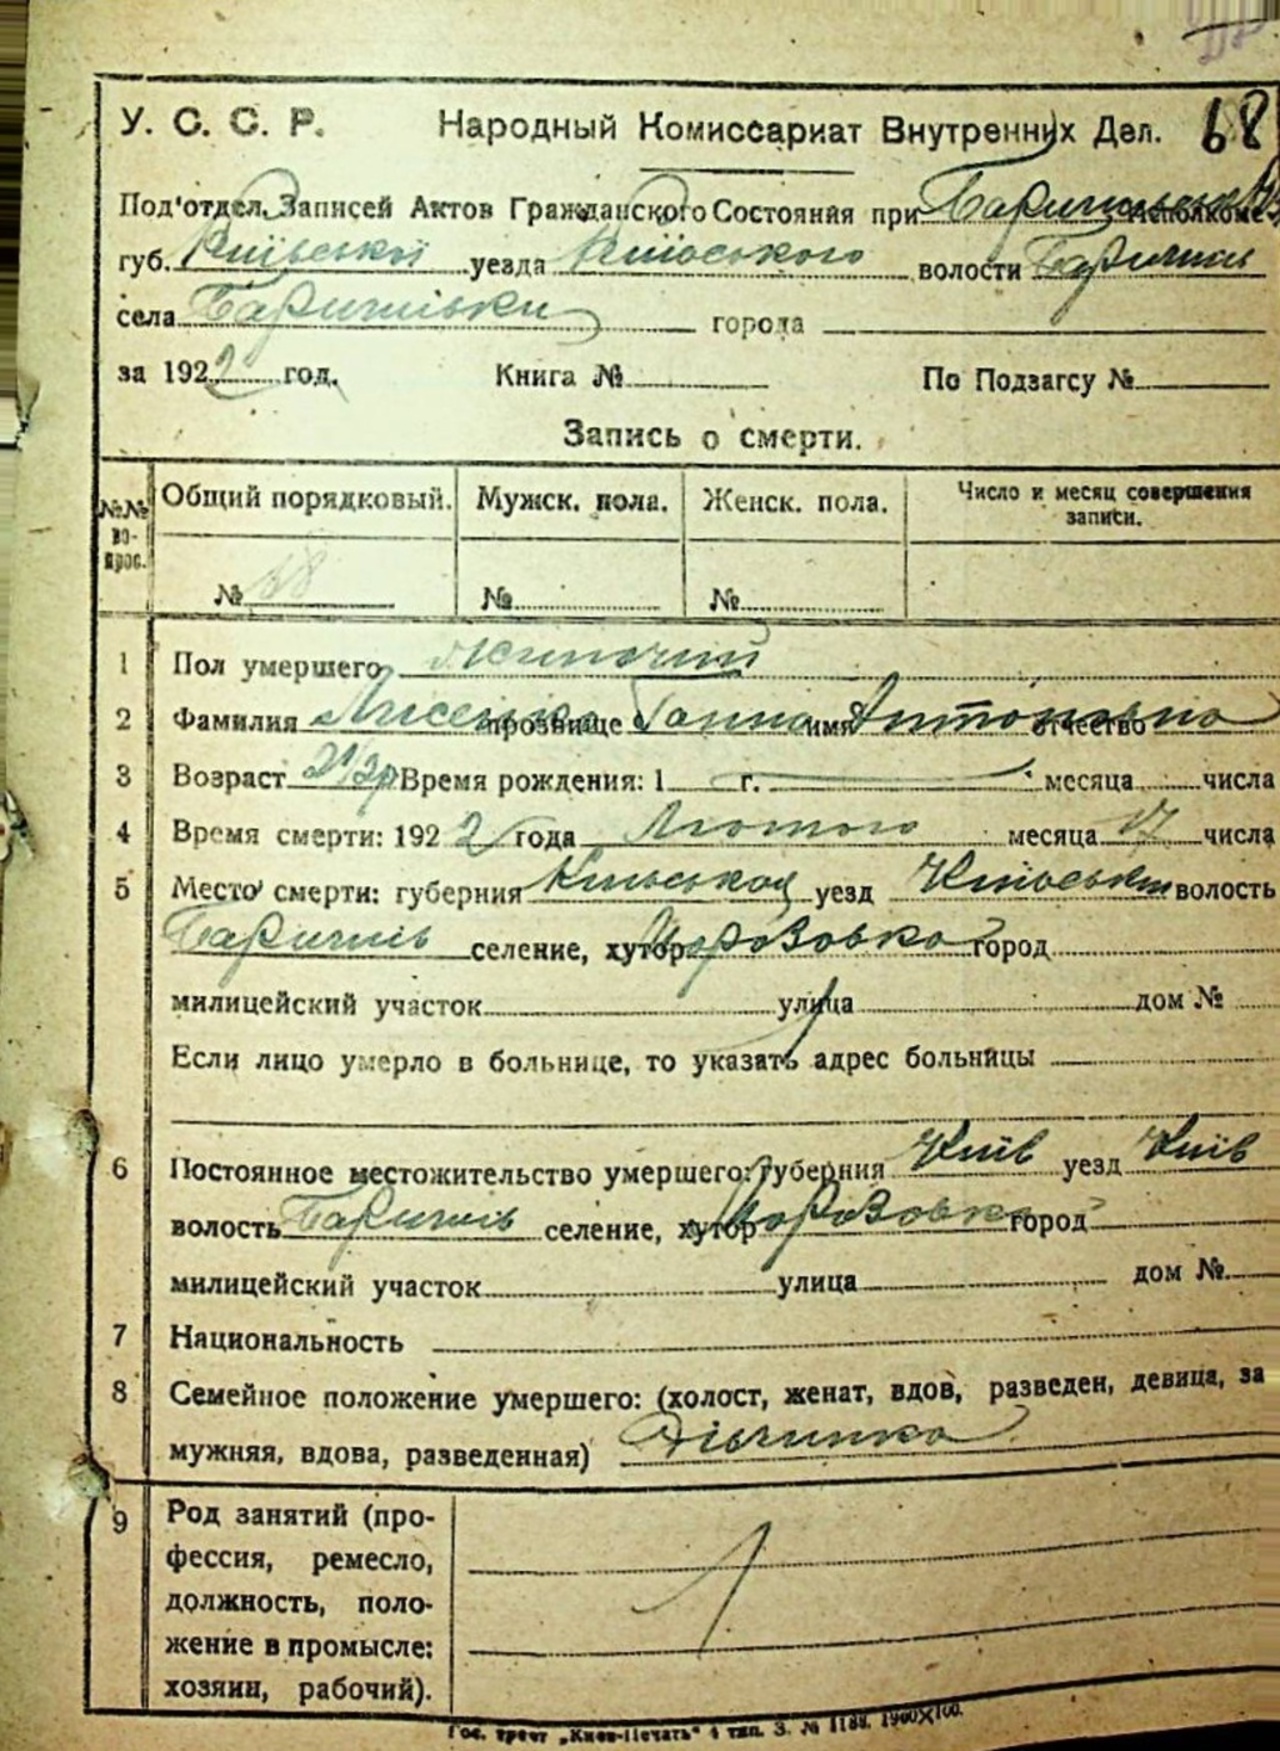 У. С. С. Р. Народный Комиссариат Внутренних Дел. 68
Под'отдел Записей Актов Гражданского Состояния при Исполкоме
губ. Київської уезда Київського волости Баришів
села Баришівки города
за 1922 год. Книга № По Подзагсу №
Запись о смерти.
№№ во-прос. Общий порядковый. Мужск. пола. Женск. пола. Число и месяц совершения записи.
№ 68 № №
1 Пол умершего жіночий
2 Фамилия Лисенко прозвище Ганна имя Антонівна отчество
3 Возраст 2 1/2 р Время рождения: 1 г. месяца числа
4 Время смерти: 1922 года Лютого месяца 17 числа
5 Место смерти: губерния Київської уезд Київськ волость
Баришів селение, хутор Морозовка город
милицейский участок улица дом №
Если лицо умерло в больнице, то указать адрес больницы
6 Постоянное местожительство умершего: губерния Київ уезд Київ
волость Баришів селение, хутор Морозовка город
милицейский участок улица дом №
7 Национальность
8 Семейное положение умершего: (холост, женат, вдов, разведен, девица, за
мужняя, вдова, разведенная) Дівчинка
9 Род занятий (про-
фессия, ремесло,
должность, поло-
жение в промысле:
хозяин, рабочий).
Гос. трест „Киев-Печать" 4 тип. З. № 1188. 1900✕100.